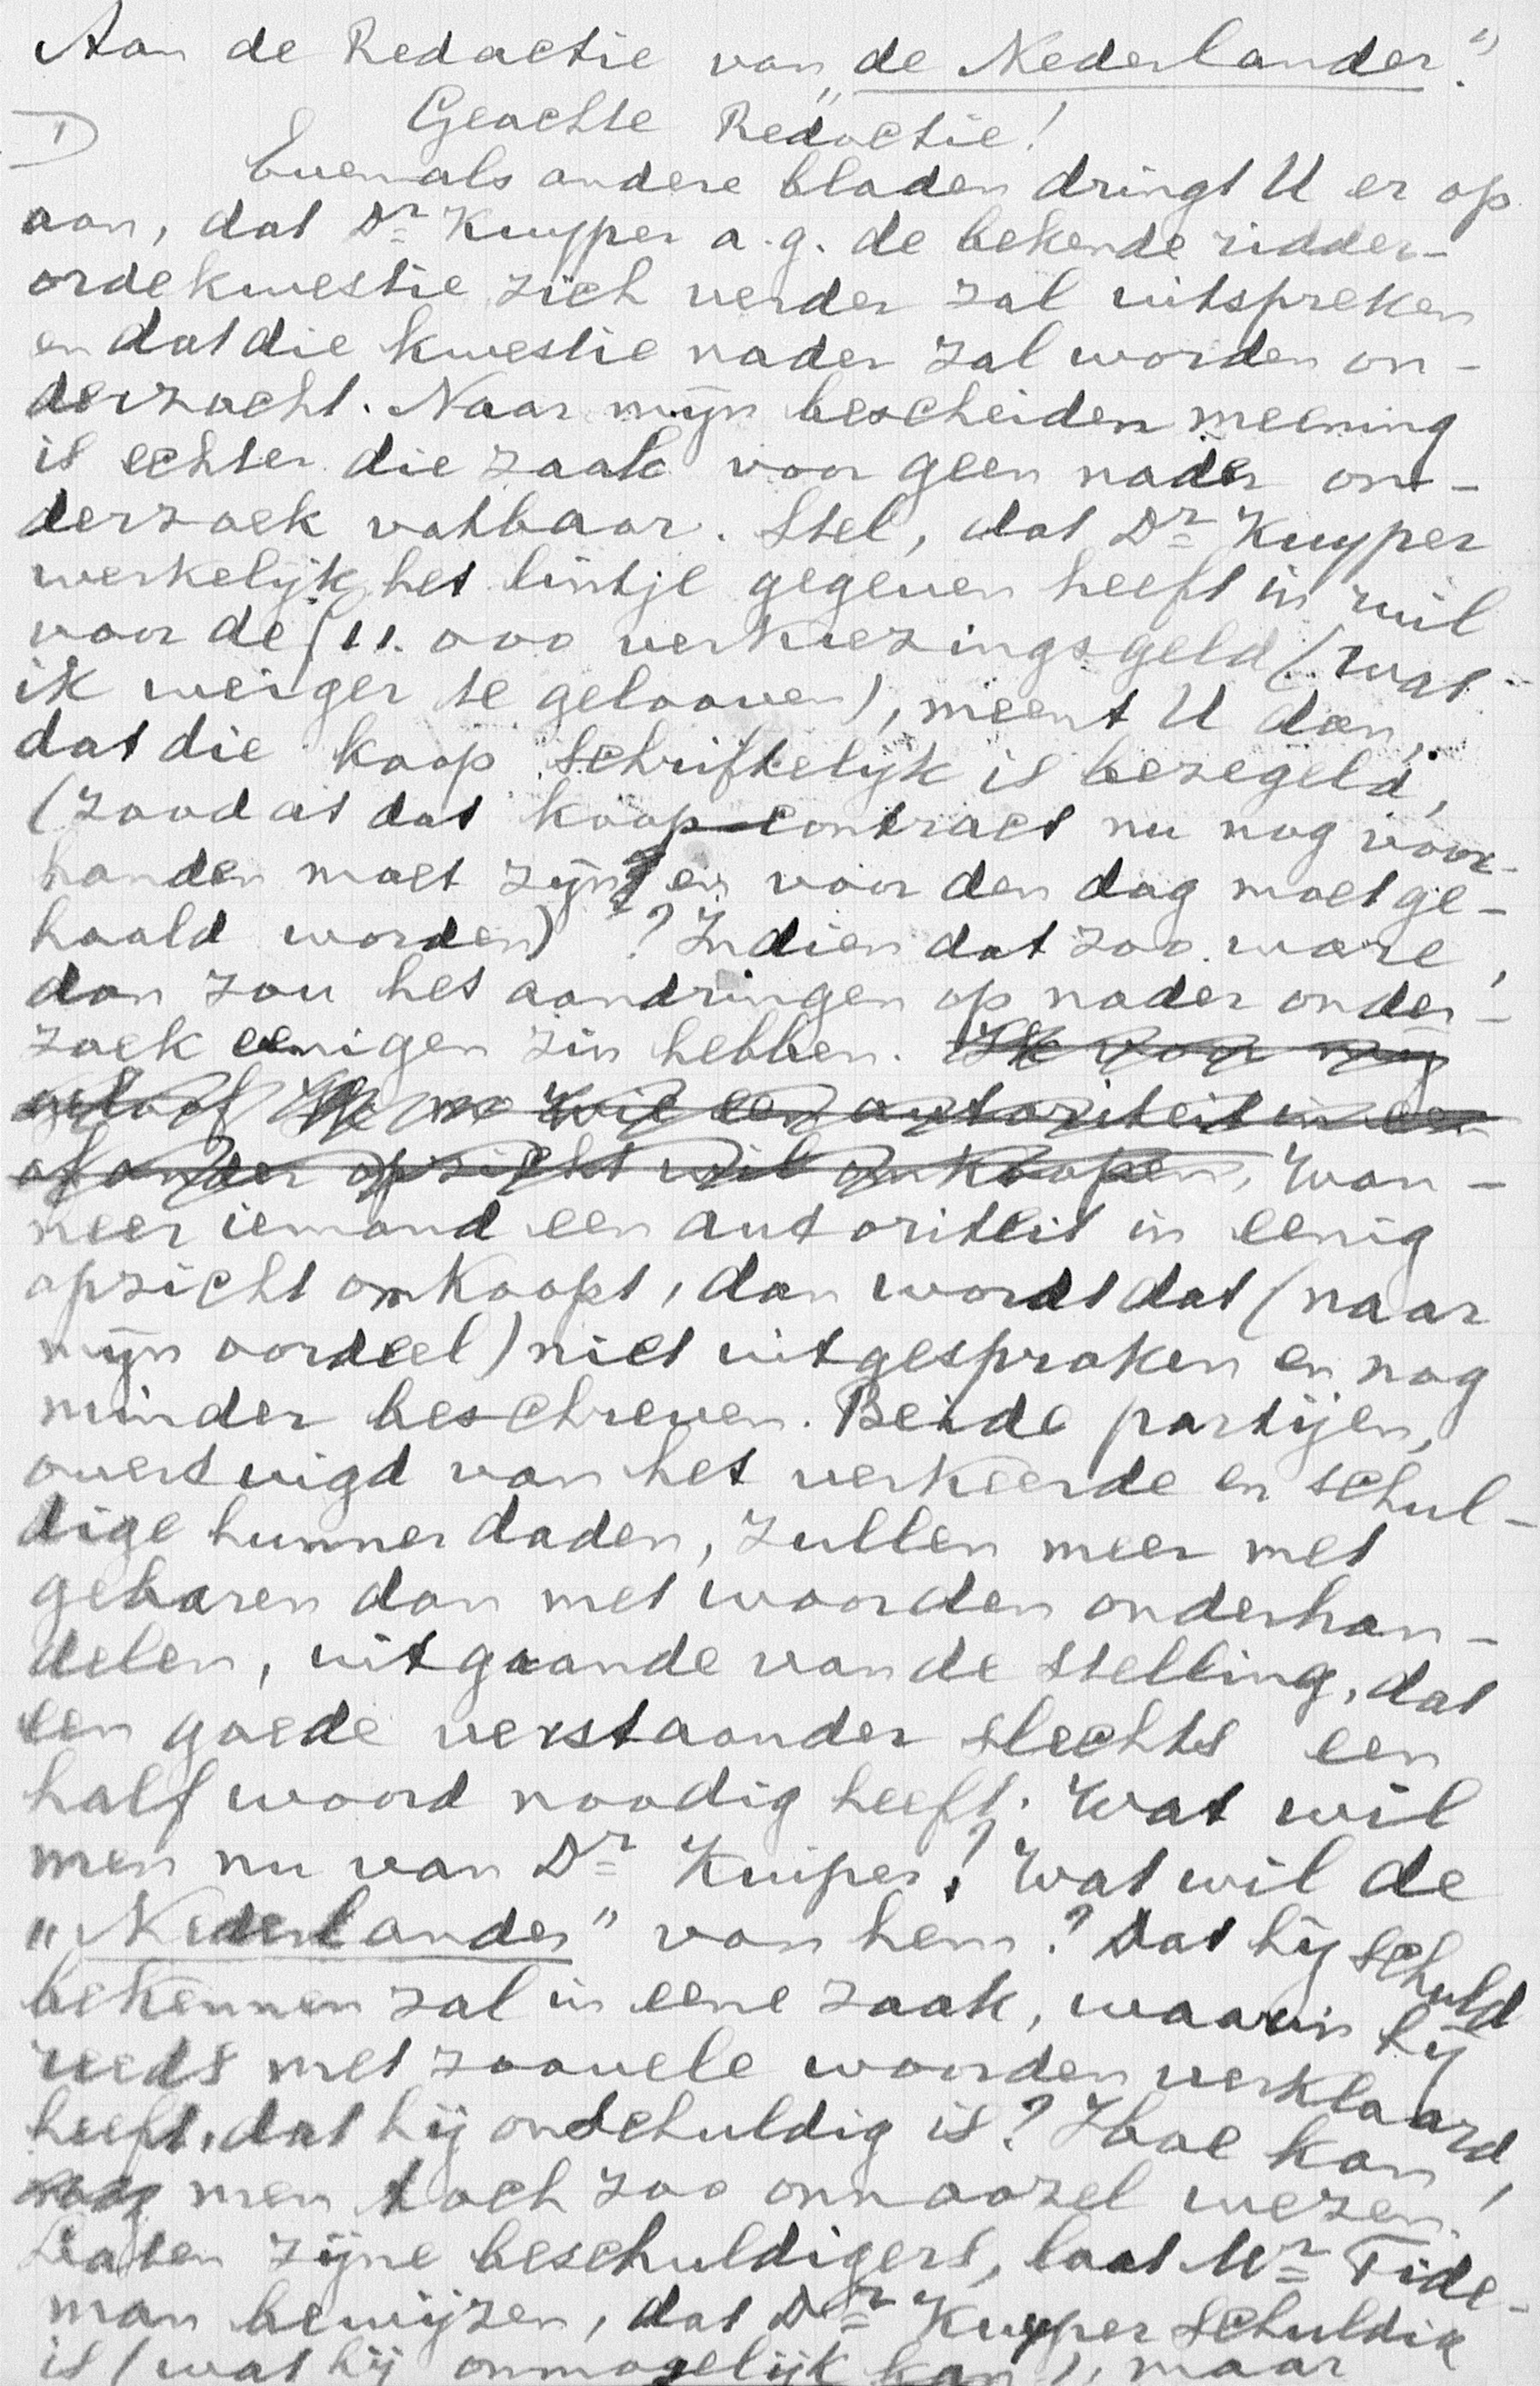 Aan de Redactie van „de Nederlander".
Geachte Redactie!
I
Evenals andere bladen dringt U er op
aan, dat Dr Kuyper a.g. de bekende ridder-
orde kwestie zich verder zal uitspreken
en dat die kwestie nader zal worden on-
derzocht. Naar mijn bescheiden meening
is echter die zaak voor geen nader on-
derzoek vatbaar. Stel, dat Dr Kuyper
werkelijk het lintje gegeven heeft in ruil
voor de f 11.000 verkiezingsgeld (wat
ik weiger te gelooven), meent U dan,
dat die koop schriftelijk is bezegeld,
(zoodat dat koop-contract nu nog voor-
handen moet zijn en voor den dag moet ge-
haald worden)? Indien dat zoo ware,
dan zou het aandringen op nader onder-
zoek eenigen zin hebben. Ik voor mij
geloof wie een autoriteit in een
of ander opzicht wil omkoopen, Wan-
neer iemand een autoriteit in eenig
opzicht omkoopt, dan wordt dat (naar
mijn oordeel) niet uitgesproken en nog
minder beschreven. Beide partijen,
overtuigd van het verkeerde en schul-
dige hunner daden, zullen meer met
gebaren dan met woorden onderhan-
delen, uitgaande van de stelling, dat
een goede verstaander slechts een
half woord noodig heeft. Wat wil
men nu van Dr Kuiper? Wat wil de
„Nederlander" van hem? Dat hij schuld
bekennen zal in eene zaak, waarin hij
reeds met zoovele woorden verklaard
heeft, dat hij onschuldig is? Hoe kan
men toch zoo onnoozel wezen!
Laten zijne beschuldigers, laat Mr Tide-
man bewijzen, dat Dr Kuyper schuldig
is (wat hij onmogelijk kan), maar